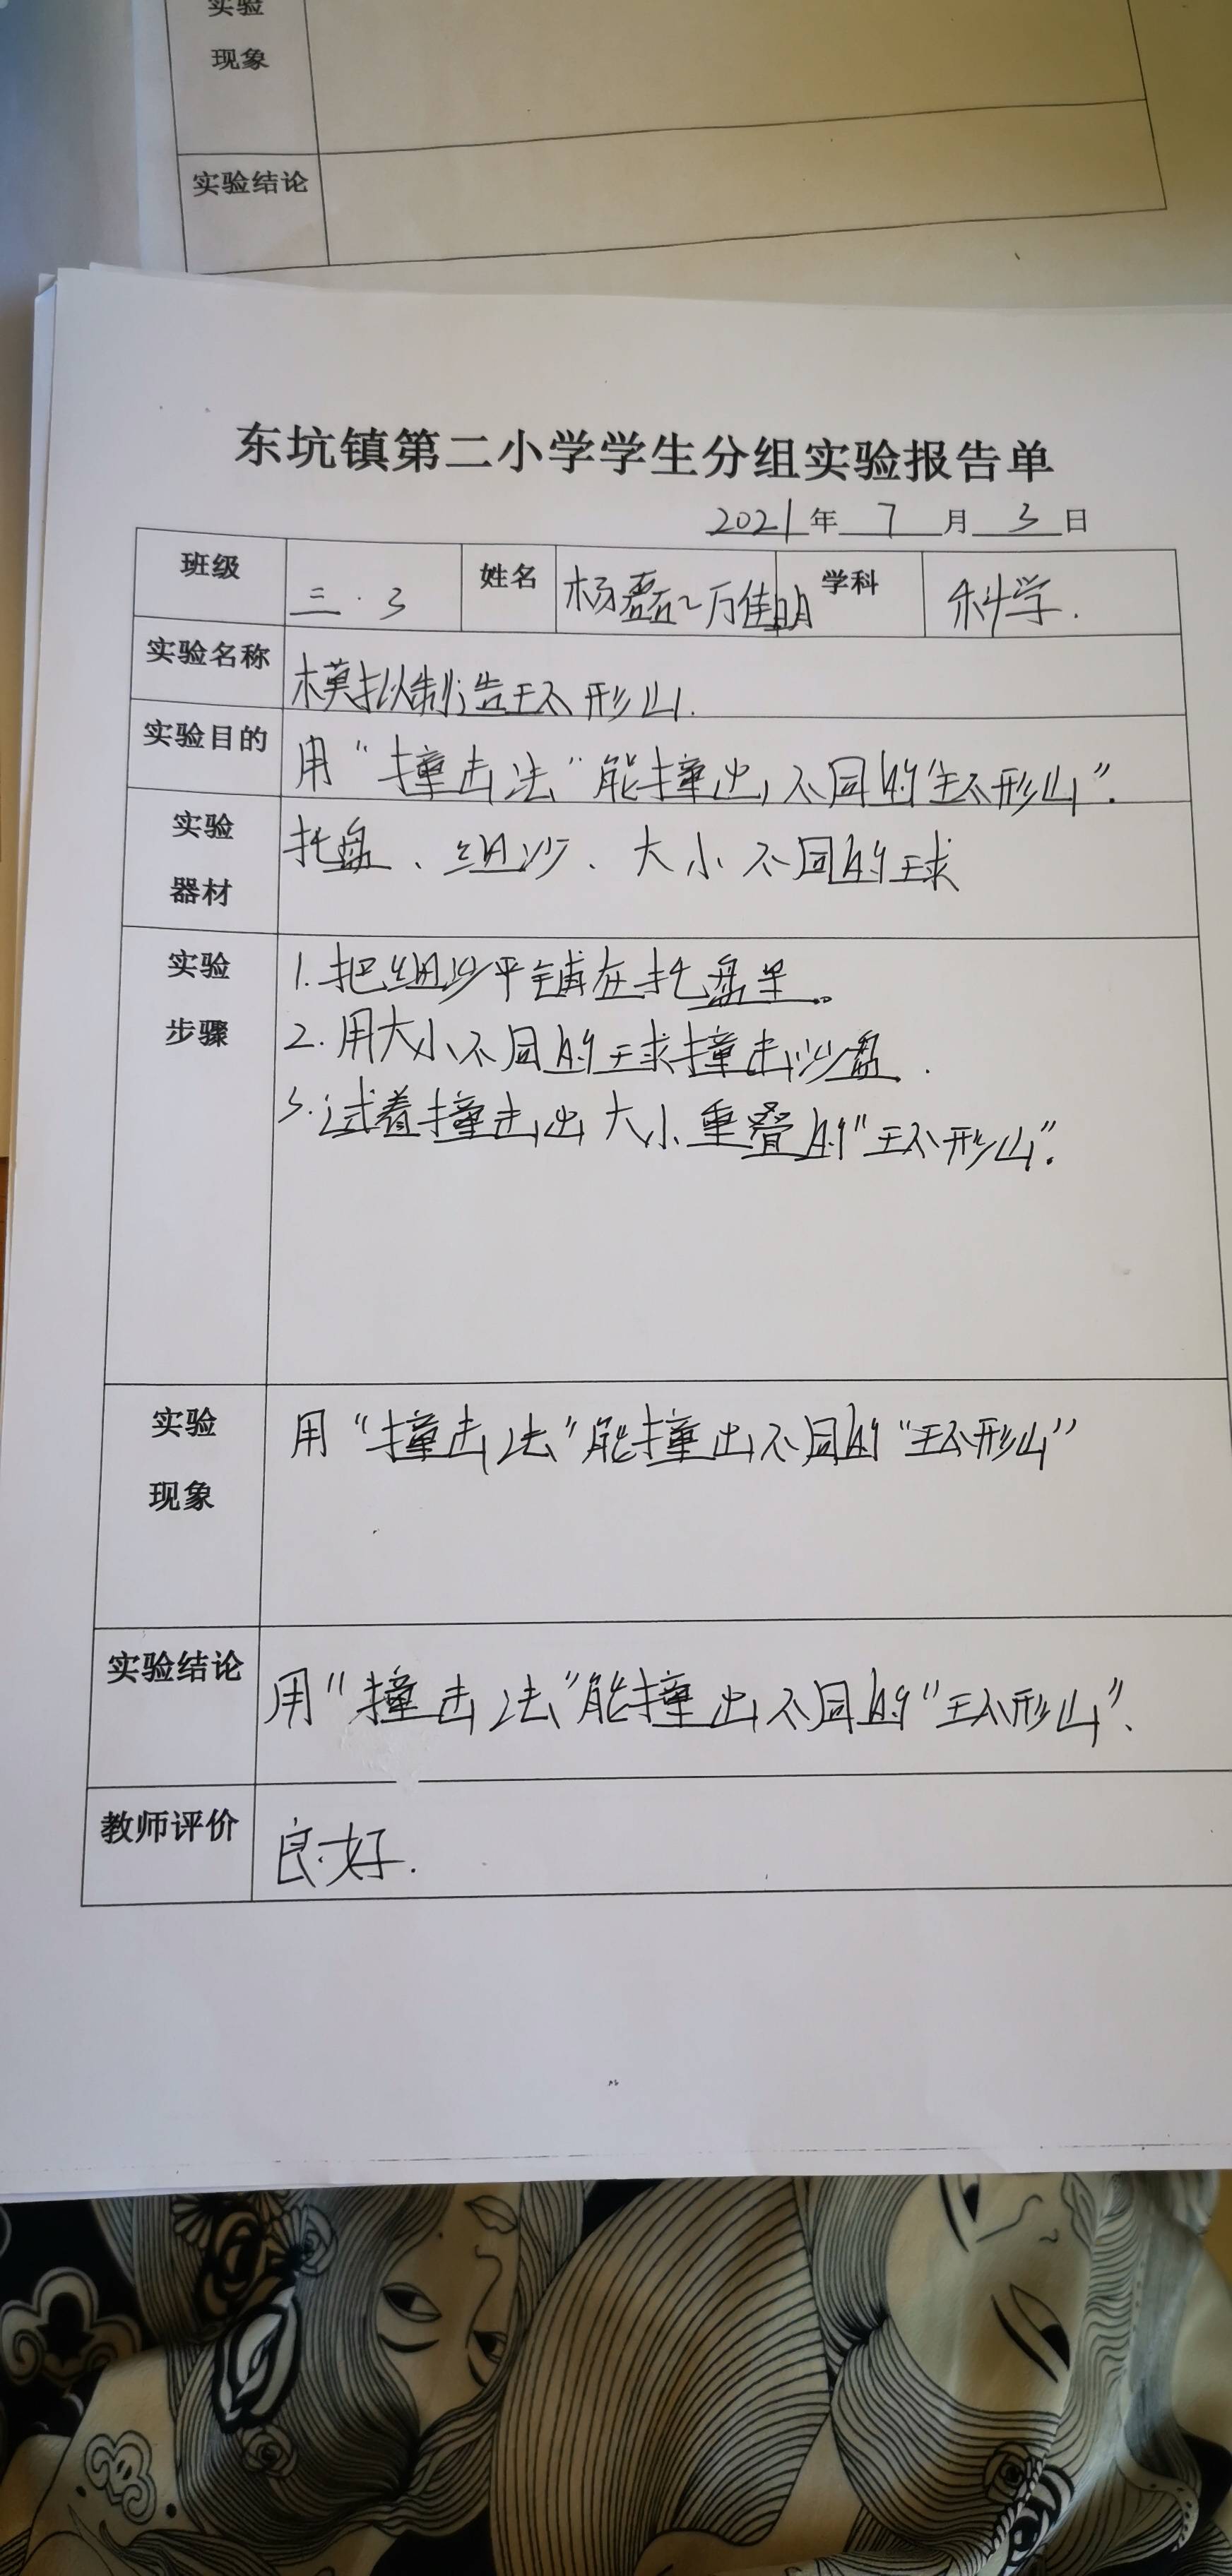 实验
现象
实验结论
东坑镇第二小学学生分组实验报告单
2021年 7 月 3 日
班级 三.3 姓名 杨磊~万佳明 学科 科学.
实验名称 模拟制造环形山.
实验目的 用“撞击法”能撞出不同的“环形山”.
实验 托盘、细沙、大小不同的球
器材
实验 1.把细沙平铺在托盘里。
步骤 2.用大小不同的球撞击沙盘.
3.试着撞击出大小重叠的“环形山”.
实验 用“撞击法”能撞出不同的“环形山”
现象
实验结论 用“撞击法”能撞出不同的“环形山”、
教师评价 良好.